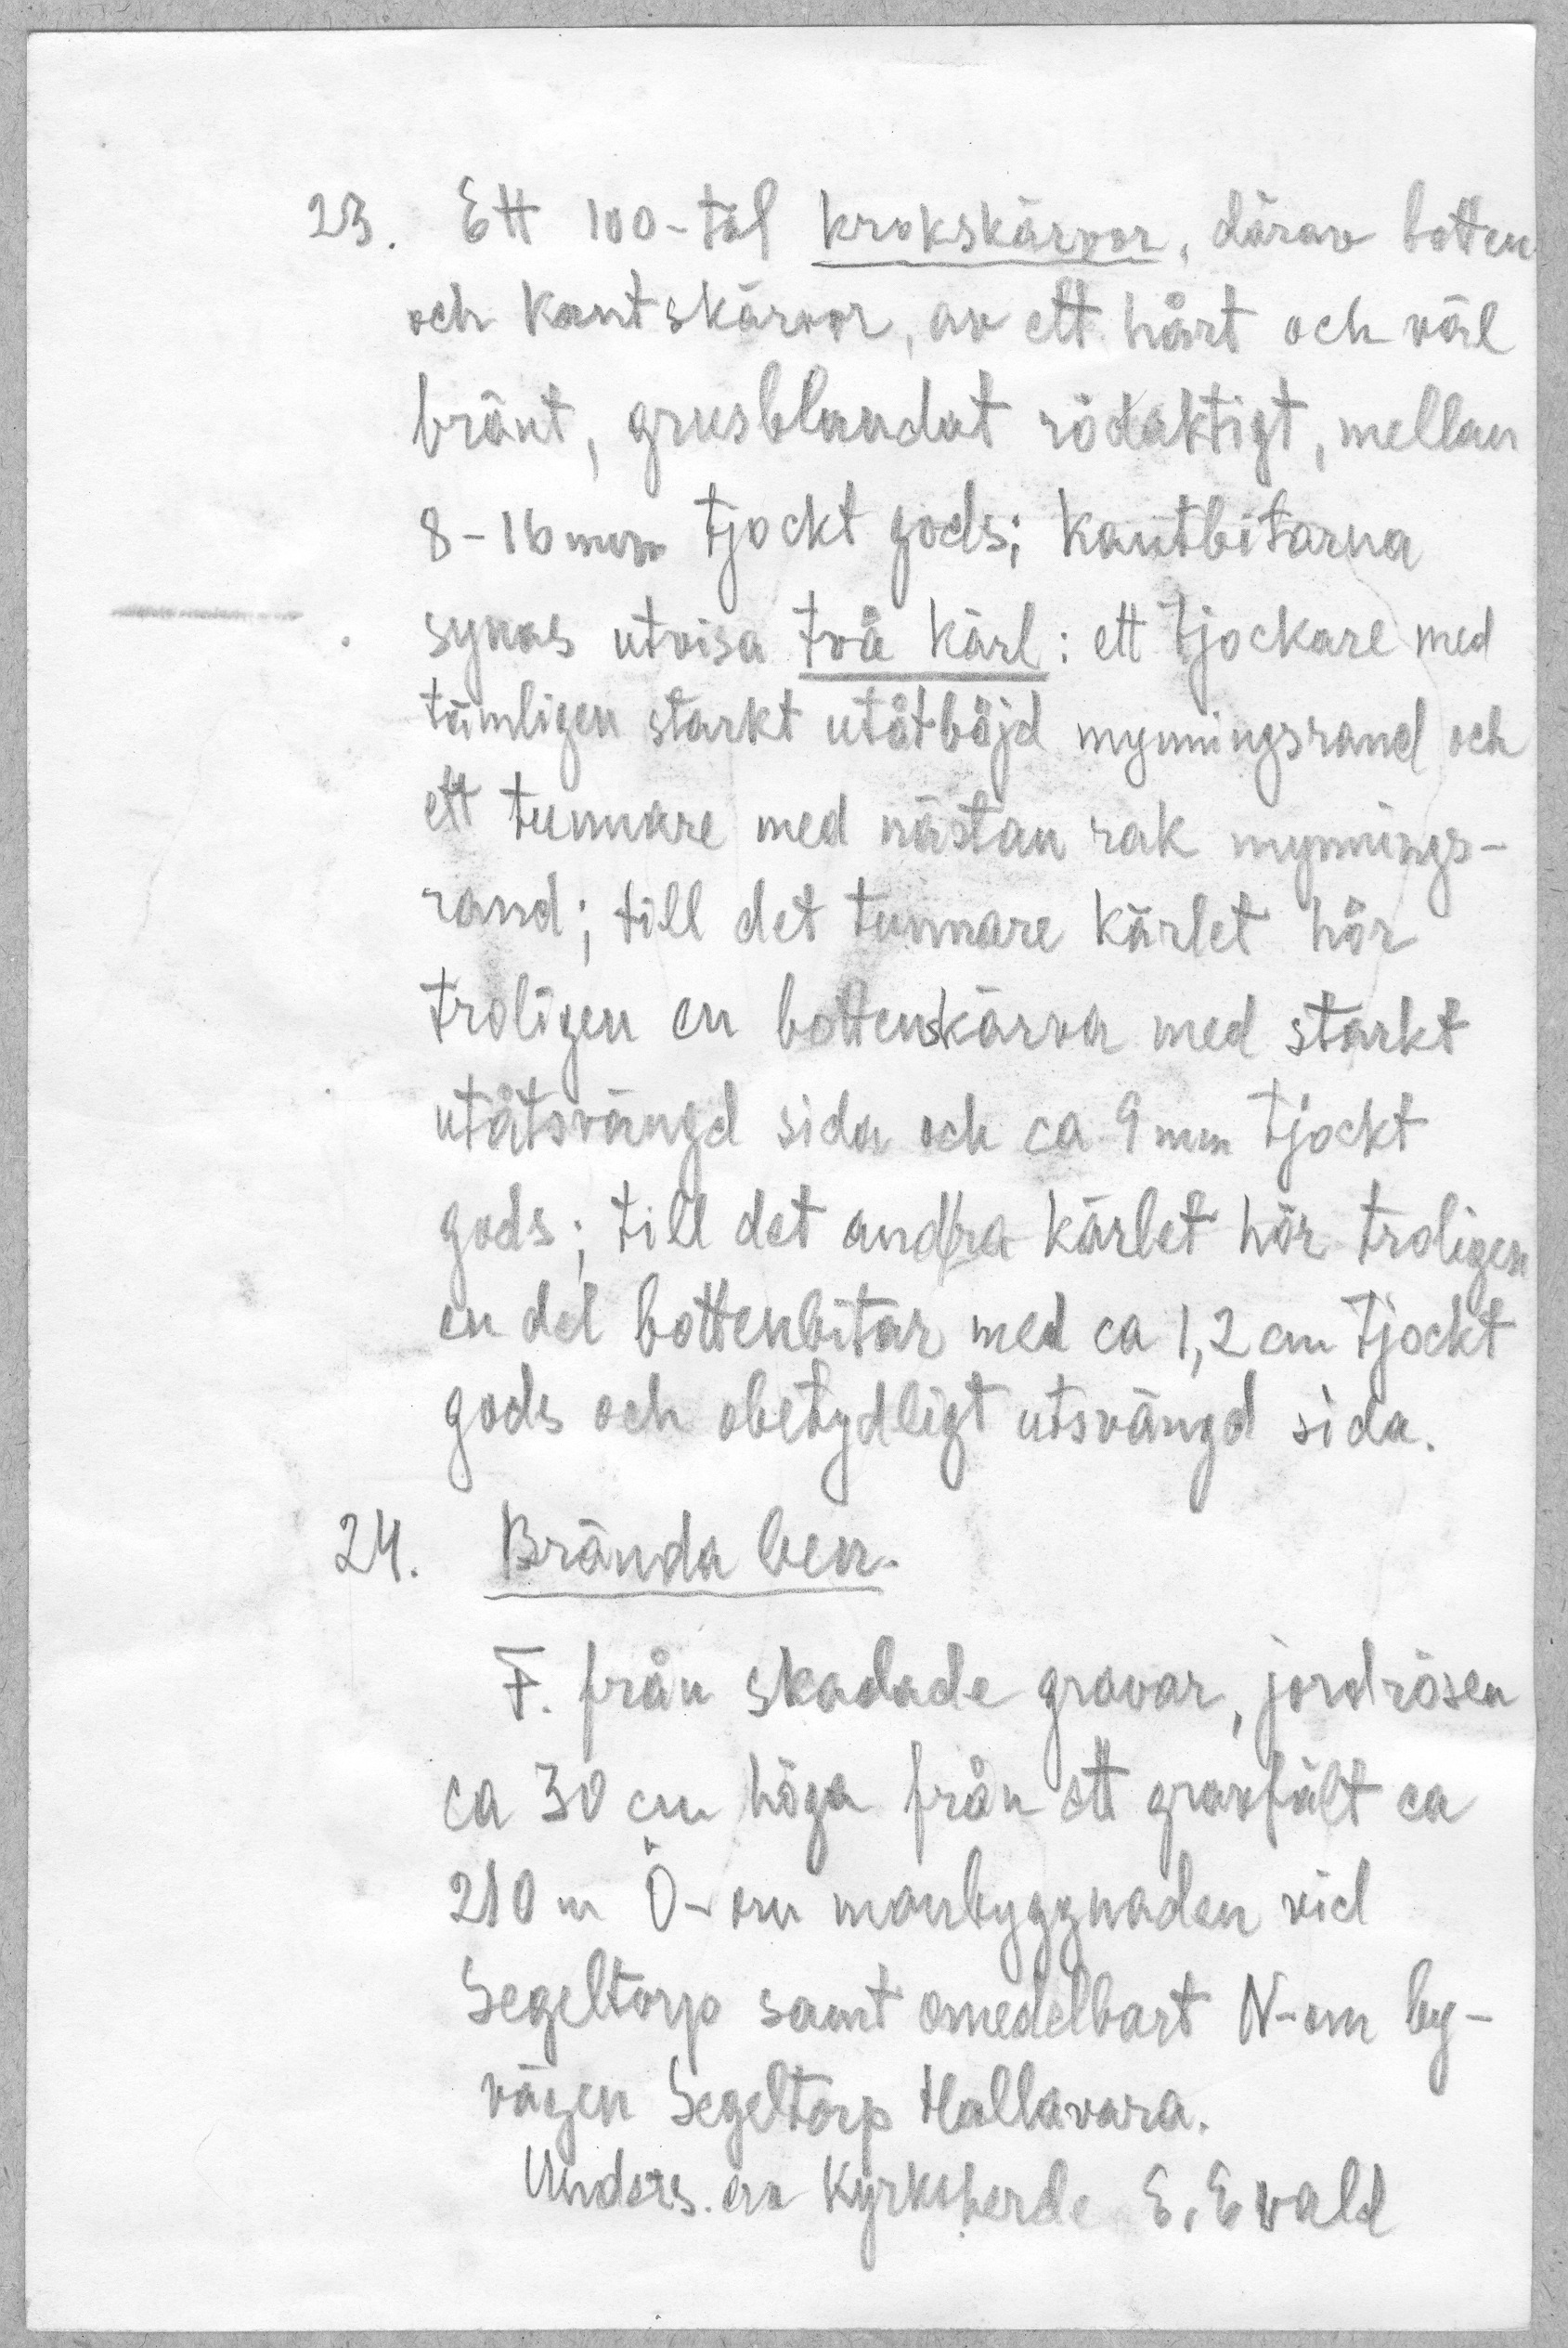 23. Ett 100-tal krukskärvor, därav botten
och kantskärvor, av ett hårt och väl
bränt, grusblandat rödaktigt, mellan
8-16 mm tjockt gods; kantbitarna
synas utvisa två kärl: ett tjockare med
tämligen starkt utåtböjd mynningsrand och
ett tunnare med nästan rak mynnings-
rand; till det tunnare kärlet hör
troligen en bottenskärva med starkt
utåtsvängd sida och ca 9 mm tjockt
gods; till det andra kärlet hör troligen
en del bottenbitar med ca 1,2 cm tjockt
gods och obetydligt utsvängd sida.
24. Brända ben.
F. från skadade gravar, jordrösen
ca 30 cm höga från ett gravfält ca
210 m Ö-om manbyggnaden vid
Segeltorp samt omedelbart N-om by-
vägen Segeltorp Hallavara.
Unders. av Kyrkoherde E. Ewald